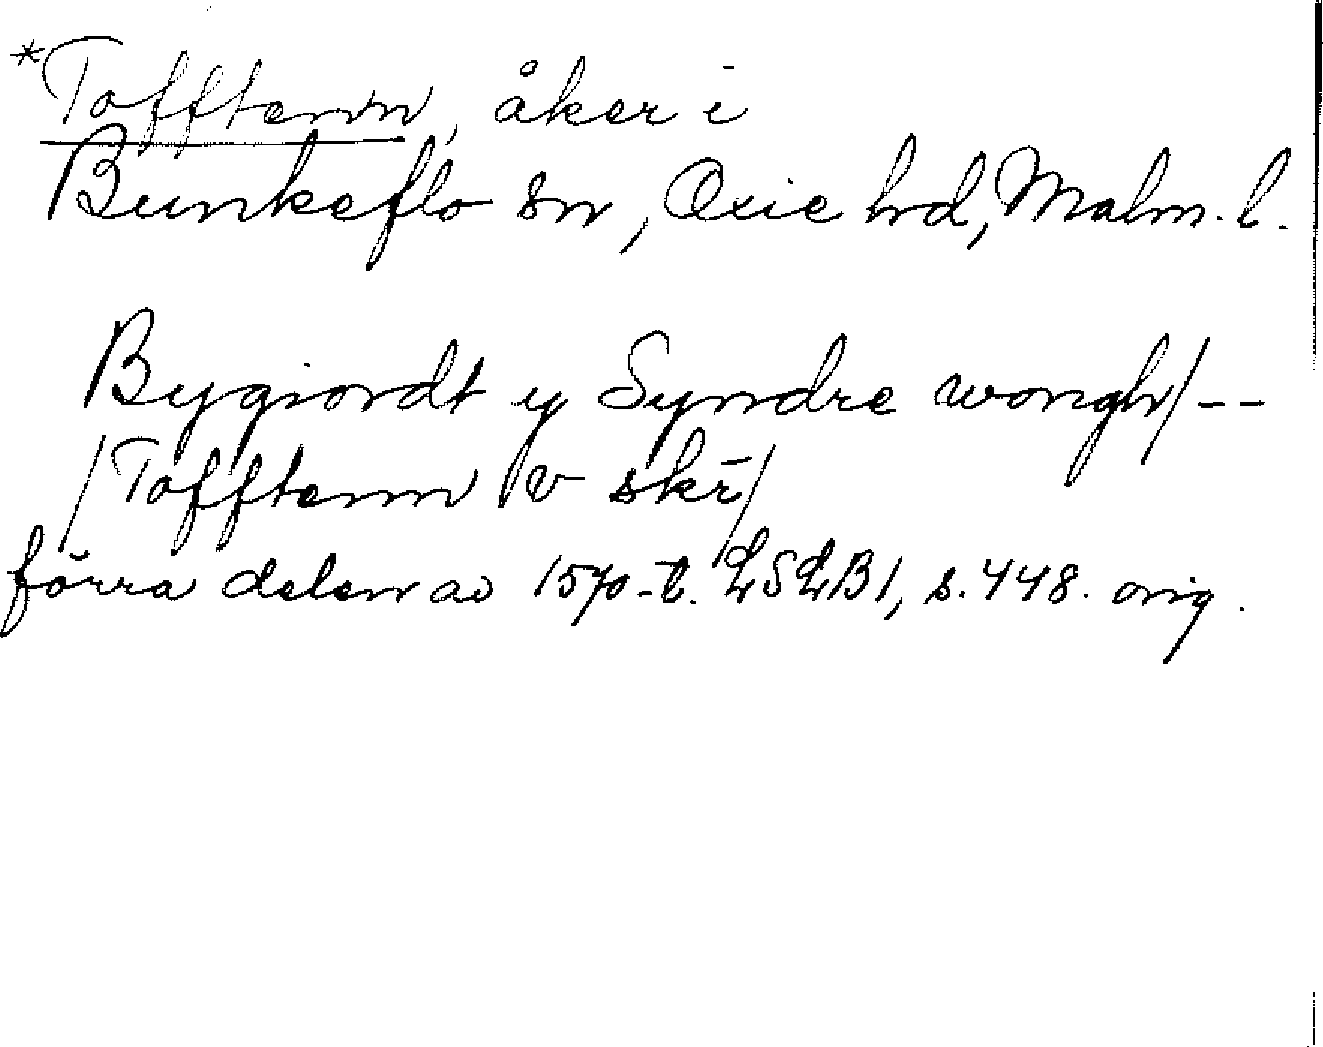 *Tofftenn, åker i
Bunkeflo sn, Oxie hd, Malm. l.
Bygiordt y Syndre wongh/--
/Tofftenn v skr/
förra delen av 1570-t. LSLB1, s. 448. orig.